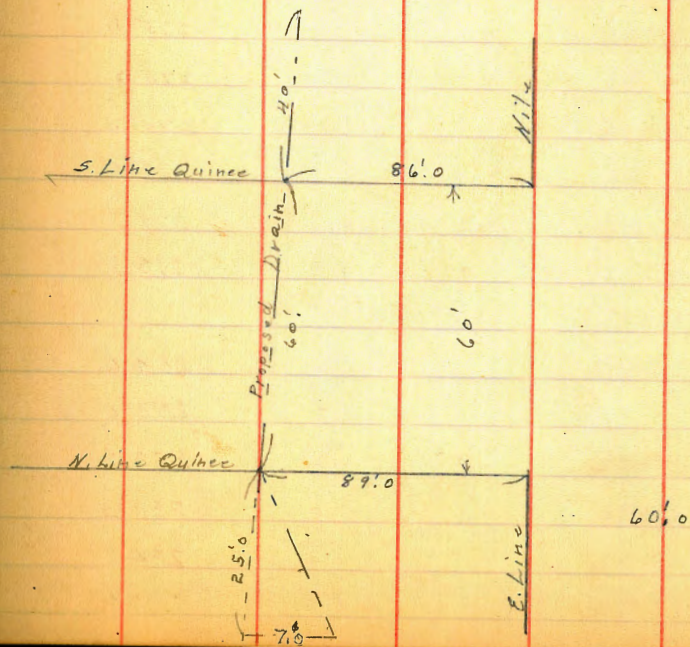 40'
Nile
S. Line Quince
86'.0
Proposed Drain
60'
60'
N. Line Quince
89'.0
60'.0
25'.0
E. Line
7'.0